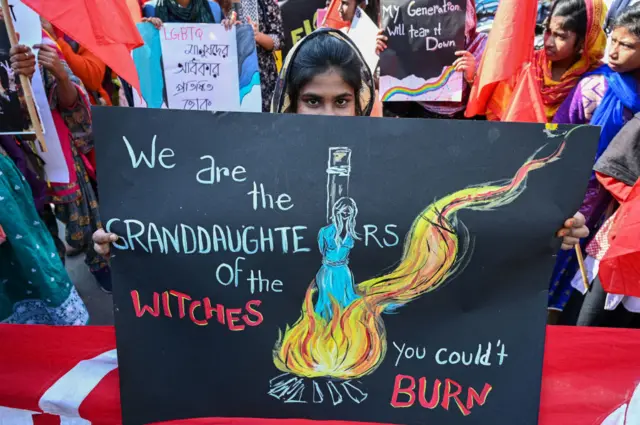 LGBTQ
অধিকার
হোক
My Generation
Will
tear it Down
We are
the
GRANDDAUGHTERS
Of the
WITCHES
you could't
BURN